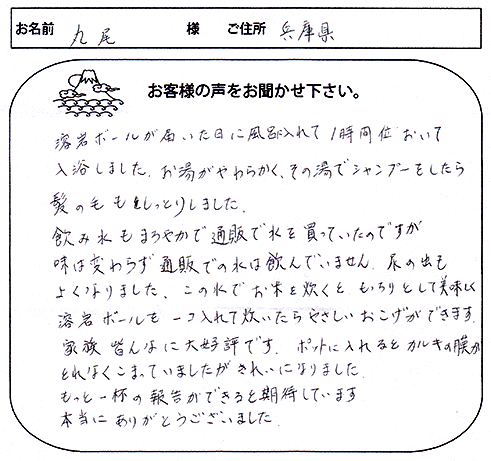 お名前 丸尾 様 ご住所 兵庫県
お客様の声をお聞かせ下さい。
溶岩ボールが届いた日に風呂入れて1時間位おいて
入浴しました。お湯がやわらかく、その湯でシャンプーをしたら
髪の毛もしっとりしました。
飲み水もまろやかで通販で水を買っていたのですが
味は変わらず通販での水は飲んでいません。尿の出も
よくなりました、この水でお米を炊くともっちりとして美味しく
溶岩ボールも一コ入れて炊いたらやさしいおこげができます。
家族皆んなに大好評です。ポットに入れるとカルキの膜が
とれなくこまっていましたがきれいになりました。
もっと一杯の報告ができると期待しています
本当にありがとうございました。